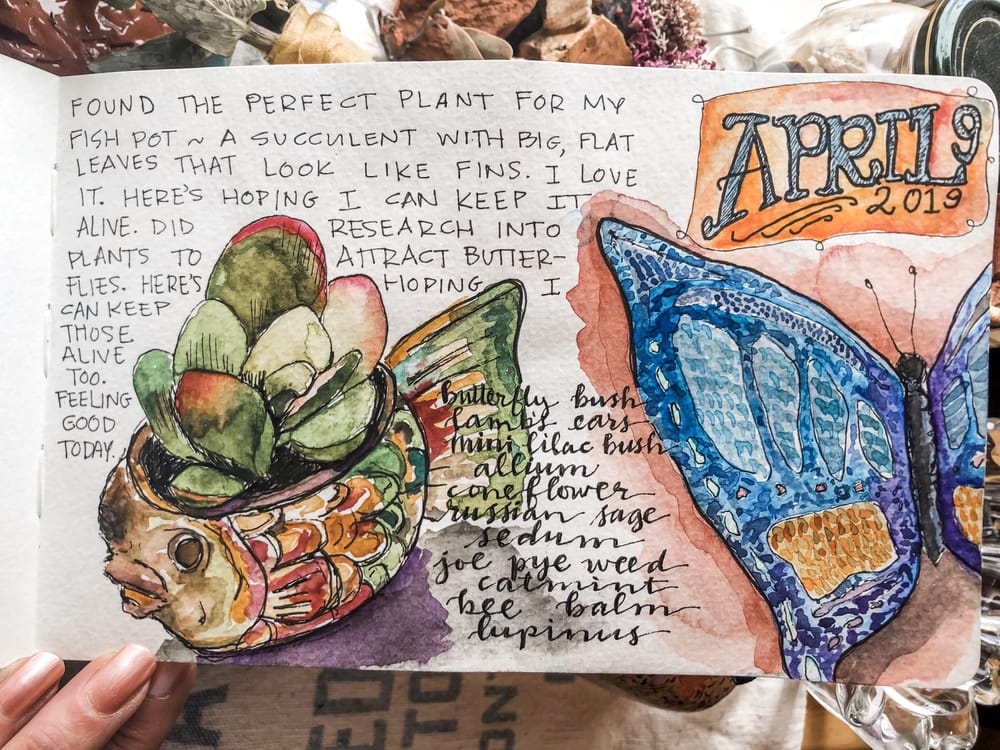 FOUND THE PERFECT PLANT FOR MY
FISH POT ~ A SUCCULENT WITH BIG, FLAT
LEAVES THAT LOOK LIKE FINS. I LOVE
IT. HERE'S HOPING I CAN KEEP IT
ALIVE. DID RESEARCH INTO
PLANTS TO ATTRACT BUTTER-
FLIES. HERE'S HOPING I
CAN KEEP
THOSE
ALIVE
TOO.
FEELING
GOOD
TODAY.
butterfly bush
lamb's ears
mini lilac bush
allyum
coneflower
russian sage
sedum
joe pye weed
catmint
bee balm
lupinus
APRIL 9
2019